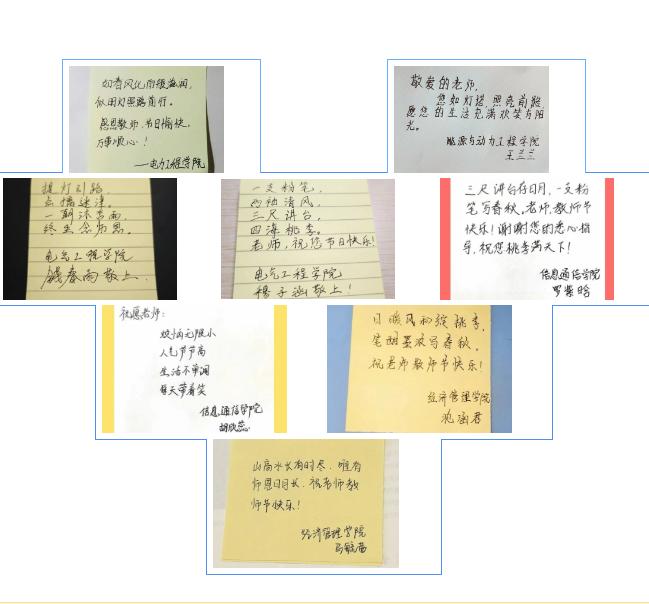 如春风化雨般滋润，
似明灯照路前行。
恩思敬师，节日愉快，
万事顺心！
——电力工程学院
敬爱的老师，
您如灯塔，照亮前程
愿您的生活充满欢笑与阳
光。
能源与动力工程学院
王兰兰
提灯引路，
点悟迷津。
一朝沐杏雨，
终生念师恩。
电气工程学院
春雨敬上
一支粉笔，
两袖清风，
三尺讲台，
四海桃李。
老师，祝您节日快乐！
电气工程学院
穆子涵敬上！
三尺讲台存日月，一支粉
笔写春秋。老师，教师节
快乐！谢谢您的悉心指
导，祝您桃李满天下！
信息通信学院
罗紫晗
祝愿老师：
烦恼无限小
人气节节高
生活不单调
每天带着笑
信息通信学院
胡欣蕊
日暖风和绽桃李，
笔酣墨浓写春秋，
祝老师教师节快乐！
经济管理学院
沈涵君
山高水长有时尽，唯有
师恩日月长，祝老师教
师节快乐！
经济管理学院
马毓蔷